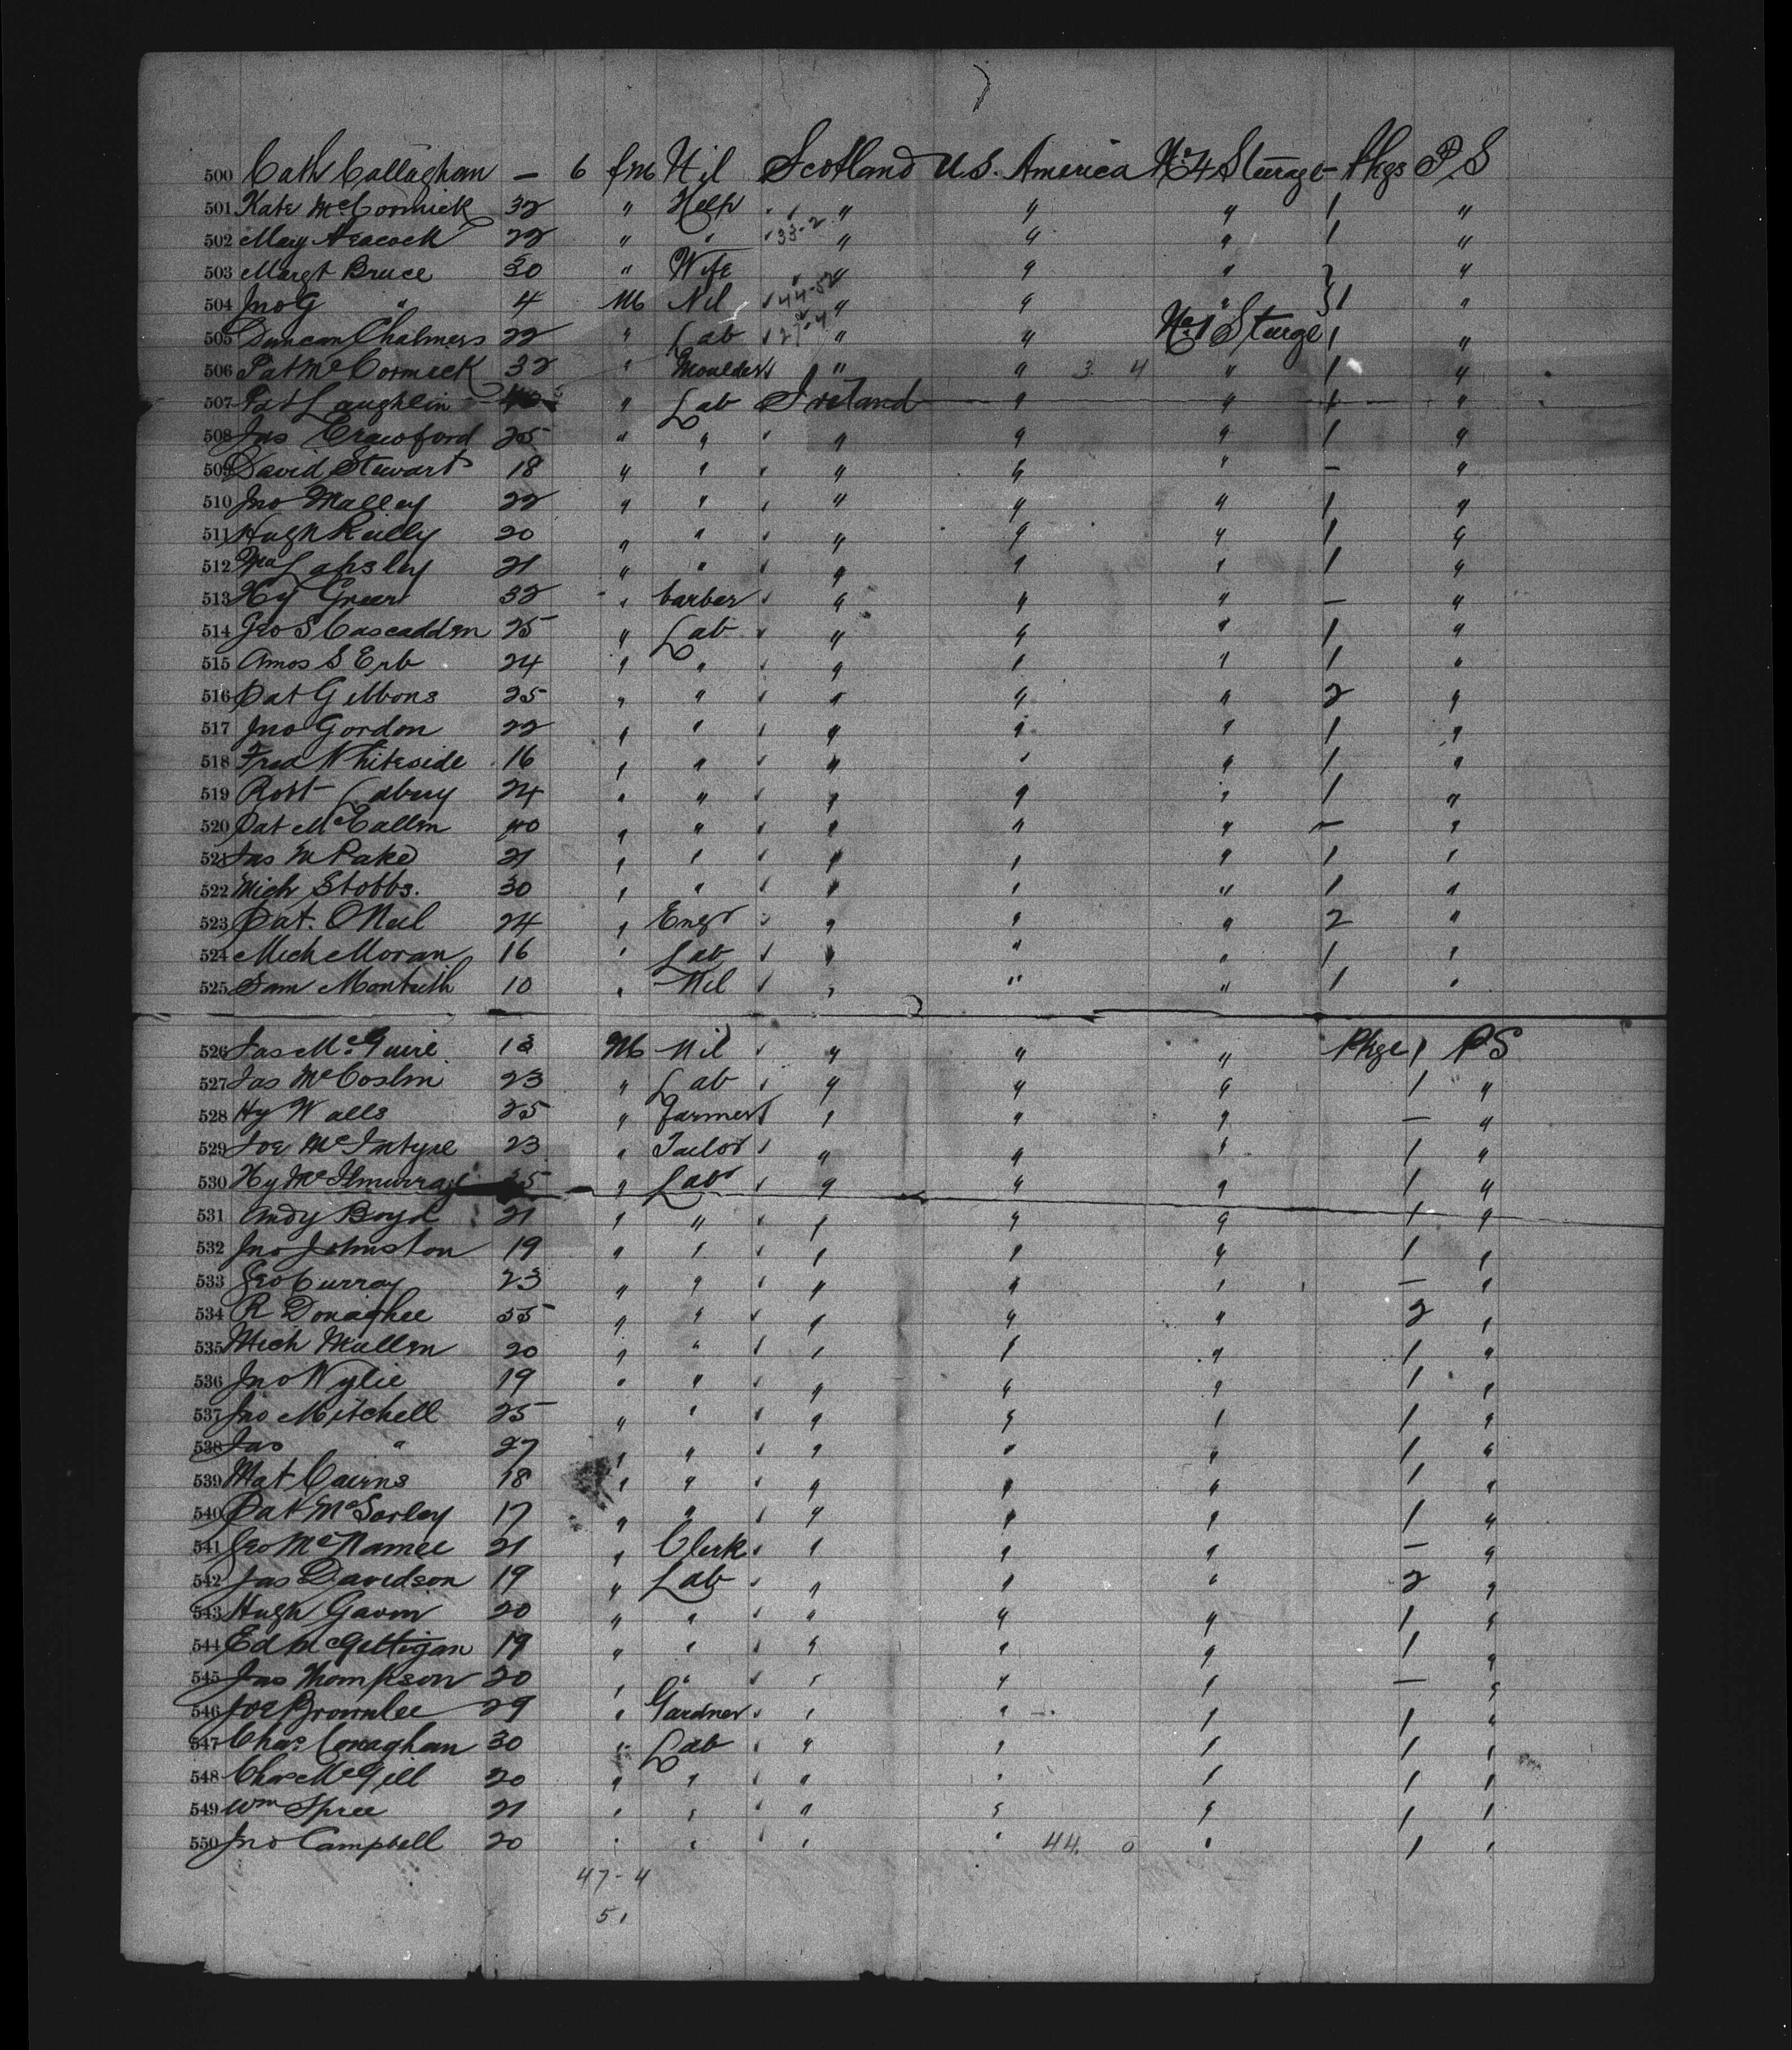 500 Cath Callaghan — 6 fm Nil Scotland U.S. America No 4 Sturage - Pkgs P.S
501 Kate McCormick 32 " Help " " " 1 "
502 May Heacock 22 " " 33-2 " " " 1 "
503 Margt Bruce 30 " Wife " " " "
504 Jno G " 4 M Nil 44-52 " " " 1 "
505 Duncan Chalmers 22 " Lab 27-4 " " No 1 Sturge 1 "
506 Pat McCormick 32 " Moulder " " 3 4 " 1 "
507 Pat Laughlin 40 " Lab Ireland " " 1 "
508 Jas Crawford 25 " " " " " 1 "
509 David Stewart 18 " " " " " — "
510 Jno Malley 22 " " " " " 1 "
511 Hugh Reilly 20 " " " " " 1 "
512 Lapsley 21 " " " " " 1 "
513 Hy Greer 32 " barber " " " — "
514 Geo S Cascadden 25 " Lab " " " 1 "
515 Amos S Erb 24 " " " " " 1 "
516 Pat Gibbons 25 " " " " " 2 "
517 Jno Gordon 22 " " " " " 1 "
518 Fred Whiteside 16 " " " " " 1 "
519 Robt 24 " " " " " 1 "
520 Pat McCallen 40 " " " " " — "
521 Jas McPake 21 " " " " " 1 "
522 Mich Stobbs. 30 " " " " " 1 "
523 Pat. ONeil 24 " Engr " " " 2 "
524 Mich Moran 16 " Lab " " " 1 "
525 Sam Monteith 10 " Nil " " " 1 "
526 Jas McGuire 13 M Nil " " " Pkge 1 PS
527 Jas McCoslin 23 " Lab " " " 1 "
528 Hy Walls 25 " farmer " " " — "
529 Joe McIntyre 23 " Tailor " " " 1 "
530 Hy McIlmurray 25 " Lab " " " 1 "
531 Andy Boyd 21 " " " " " 1 "
532 Jno Johnston 19 " " " " " 1 "
533 Geo Curray 23 " " " " " — "
534 R Donaghee 55 " " " " " 2 "
535 Mich Mullen 20 " " " " " 1 "
536 Jno Wylie 19 " " " " " 1 "
537 Jno Mitchell 25 " " " " " 1 "
538 Jas " 27 " " " " " 1 "
539 Mat Cairns 18 " " " " " 1 "
540 Pat McSorley 17 " " " " " 1 "
541 Geo McNamee 21 " Clerk " " " — "
542 Jas Davidson 19 " Lab " " " 2 "
543 Hugh Gavin 20 " " " " " 1 "
544 Ed McGettigan 19 " " " " " 1 "
545 Jas Thompson 20 " " " " " — "
546 Joe Brownlee 29 " Gardner " " " 1 "
547 Chas. Conaghan 30 " Lab " " " 1 "
548 Chas McGill 20 " " " " " 1 "
549 Wm Spree 21 " " " " " 1 "
550 Jno Campbell 20 " " " " 44. 0 " 1 "
47-4
51